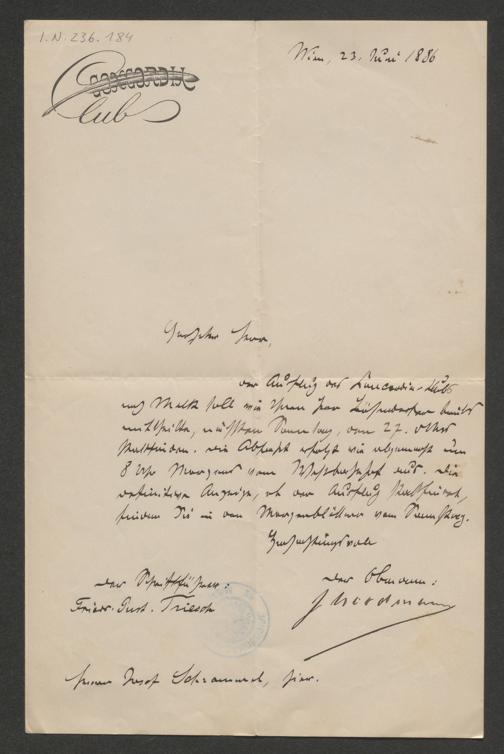 I.N. 236.184
CONCORDIA
Club
Wien, 23. Juni 1886
Geehrter Herr,
der Ausflug des Concordia-Clubs
nach Melk soll wie Ihnen Herr bereits
mittheilte, nächsten Sonntag, den 27.
stattfinden. Die Abfahrt erfolgt wie abgemacht um
8 Uhr Morgens vom Westbahnhof aus. Die
definitive Anzeige, ob der Ausflug stattfindet,
finden Sie in den Morgenblättern vom Samstag.
Hochachtungsvoll
der Schriftführer:
der Obmann:
Friedr. Gust. Triesch
J Nordmann
Herrn Josef Schrammel, hier.